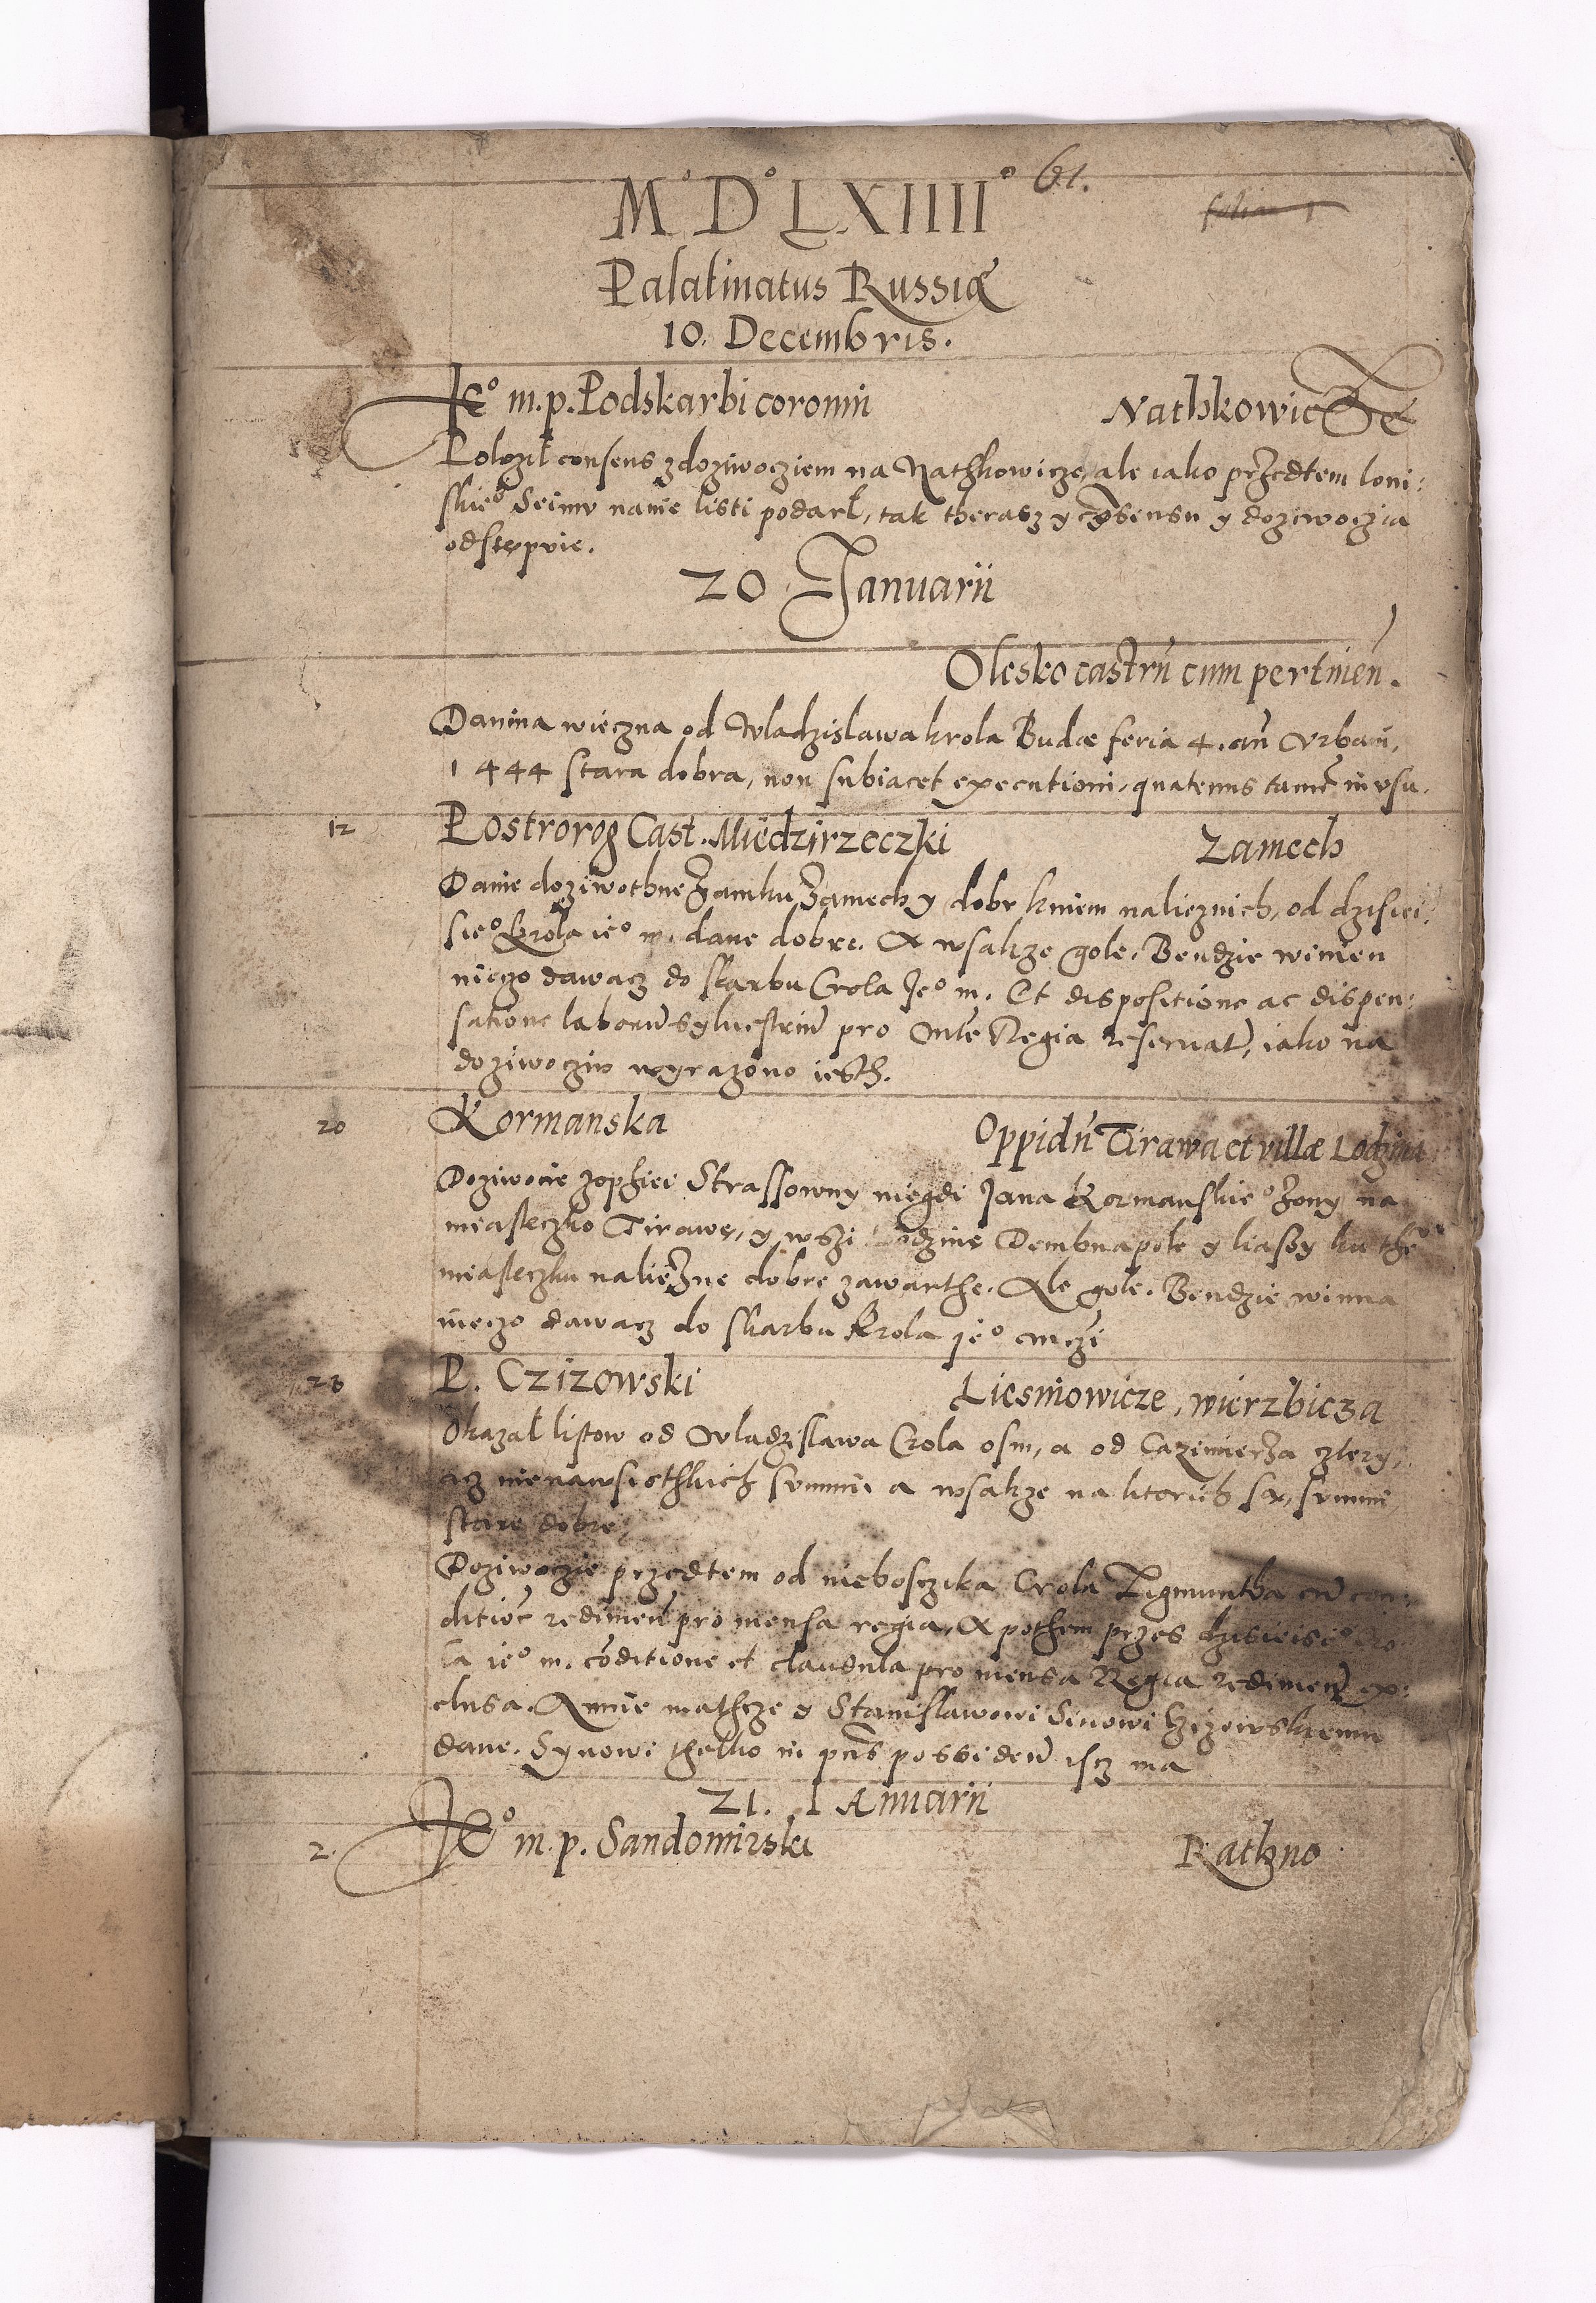 61.
M° D° LXIIII°
folium 1
Palatinatus Russiæ
10. Decembris.
Je° m. p. Podskarbi coronni Nathkowicze
Polozil consens z doziwocziem na Nathkowicze, ale iako przedtem loni:
skie° Seimu nanie listi podarł, tak therasz y cōsensu y doziwoczia
odstępuie.
20 Januarii
Olesko castrū cum pertinen̄.
Danina wieczna od Wladzislawa krola Budæ feria 4. an̄ Urban̄.
1444 stara dobra, non subiacet executioni, quatenus tamē in usu.
12 P Ostrorog Cast. Miedzirzeczki Zamech
Danie doziwothne Zamku Zamech y dobr kniem naliecznich, od dzisiei:
sie° Krola ie° m. dane dobre. A wsakze gole. Bendzie winien
niczo dawacz do skarbu Crola Je° m. Et dispositione ac dispen:
satione laborū sylvestriū pro Mte Regia reservat, iako na
doziwocziu wyrazono iesth.
20 Kormanska Oppidū Tirawa et villæ Lodzina
Doziwocie Zophiei Strassowny niegdi Jana Kormanskie° zony na
miasteczko Tirawę, y wszi Lodzinę Dembnapole y liassy ku the°
miasteczku naliezne dobre zawarthe. Ale gole. Bendzie winna
nieczo dawacz do skarbu Krola je° mczi
28 P. Czizowski Liesniowicze, wierzbicza
Okazał listow od Wladzislawa Crola osm, a od Cazimierza cztery,
acz nienawsiothkich summi a wsakze na ktorich są, summi
stare dobre,
Doziwoczie przedtem od nieboszczika Crola Zigmuntha cū con:
ditiōe redimen̄ pro mensa regia, A pothem przes dzisieisie° Kro
la ie° m. cōditione et clausula pro mensa Regia redimen̄ ex:
clusa. Annie mathcze y Stanislawowi Sinowi Czizowskiemu
dane. Synowi thelko in pn̄s possiden̄ iscz ma
21. IAnuarii
2. Je° m. p. Sandomirski Rathno